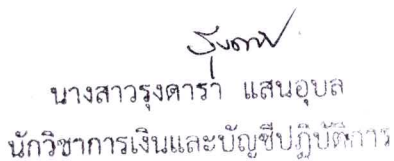 รุ่งดารา
นางสาวรุงดารา แสนอุบล
นักวิชาการเงินและบัญชีปฏิบัติการ